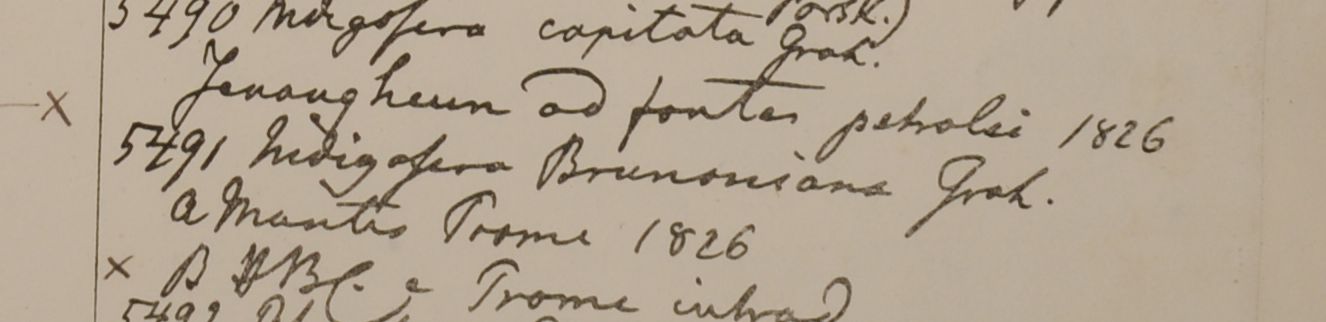 5490 Indigofera capitata Grah.
Jenangheun ad fontes petrolei 1826
5491 Indigofera Brunoniana Grah.
a Montis Prome 1826
B HBC. e Prome introd
5492